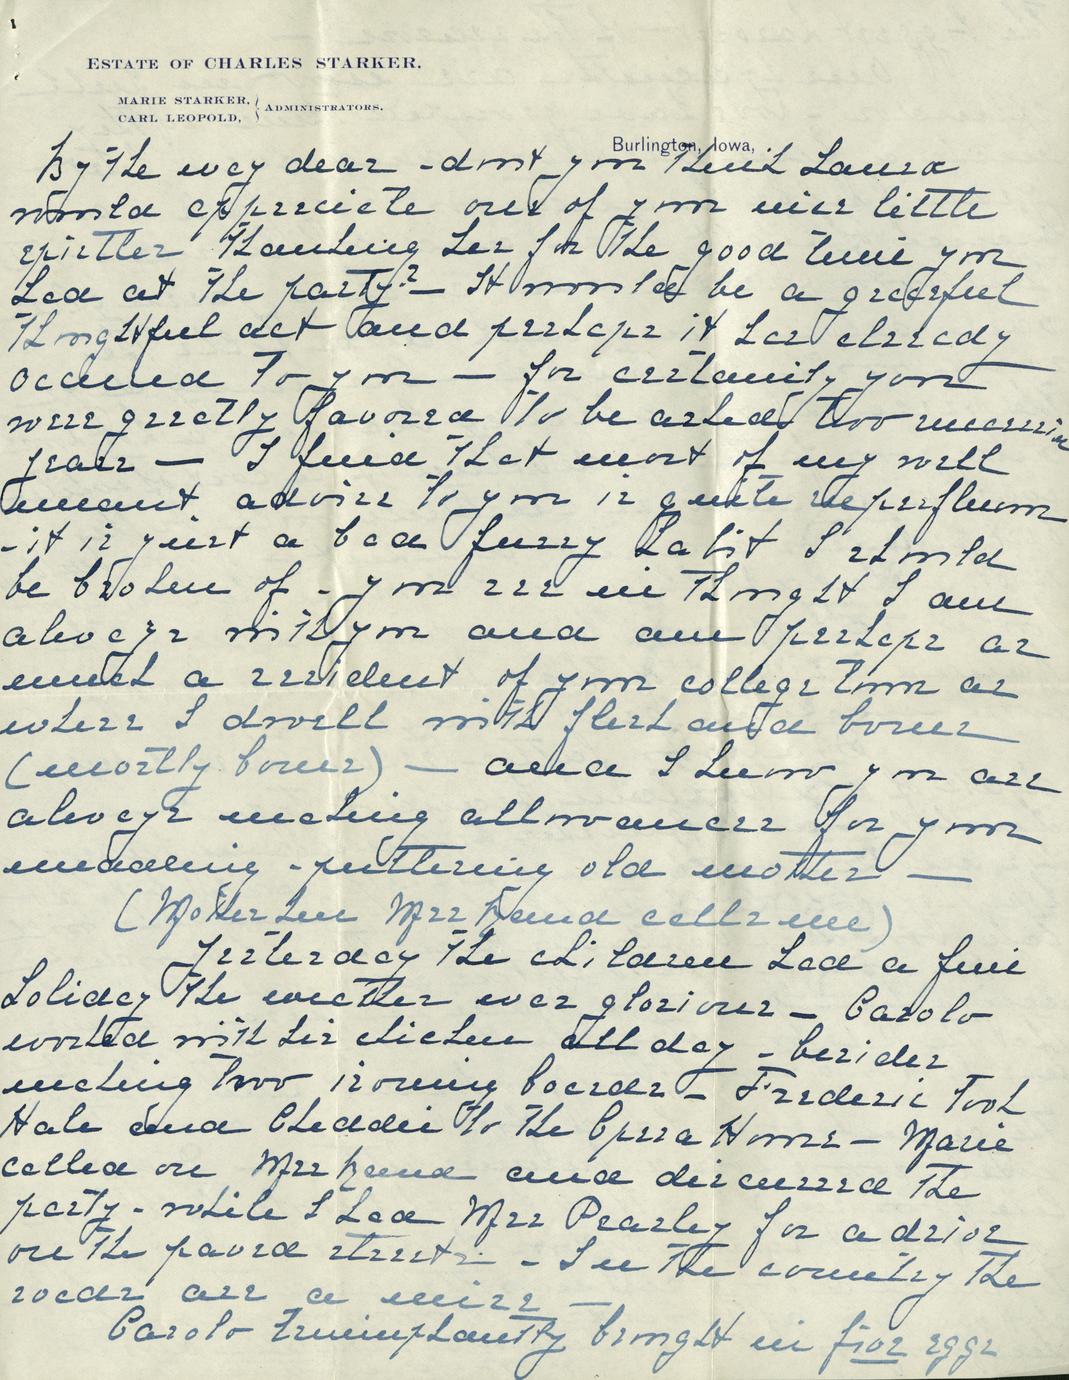 ESTATE OF CHARLES STARKER.
MARIE STARKER,
CARL LEOPOLD, } ADMINISTRATORS.
Burlington, Iowa,
By the way dear - dont you think Laura
would appreciate one of your nice little
epistles thanking her for the good time you
had at the party? — It would be a graceful
thoughtful act and perhaps it has already
occured to you — for certainly you
were greatly favored to be asked two successive
years — I find that most of my well
meant advice to you is quite superfluous
- it is just a bad fussy habit I should
be broken of - you see in thought I am
always with you and am perhaps as
much a resident of your college town as
where I dwell with flesh and bones
(mostly bones) — and I know you are
always making allowances for your
muddling - puttering old mother —
(Mother hen Mrs Rand calls me)
Yesterday the children had a fine
holiday the weather was glorious — Carolo
worked with his chicken all day - besides
making two ironing boards — Frederic took
Hale and Cheddie to the Opera House — Marie
called on Mrs Rand and discussed the
party - while I had Mrs Pearley for a drive
on the paved streets. - In the country the
roads are a mire —
Carolo triumphantly brought in five eggs